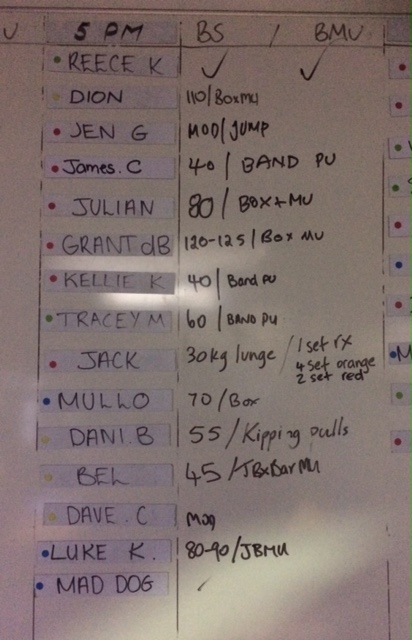 U 5 PM BS / BMU
REECE K ✓ ✓
DION 110/BoxMU
JEN G MOD/JUMP
James.C 40 / BAND PU
JULIAN 80 / BOX+MU
GRANT dB 120-125 / Box MU
KELLIE K 40 / Band PU
TRACEY M 60 / BAND PU
JACK 30kg lunge / 1 set rx
4 set orange
2 set red
MULLO 70 / Box
DANI.B 55 / Kipping pulls
BEL 45/JBxBarMU
DAVE.C Mod
LUKE K. 80-90/JBMU
MAD DOG ✓
M